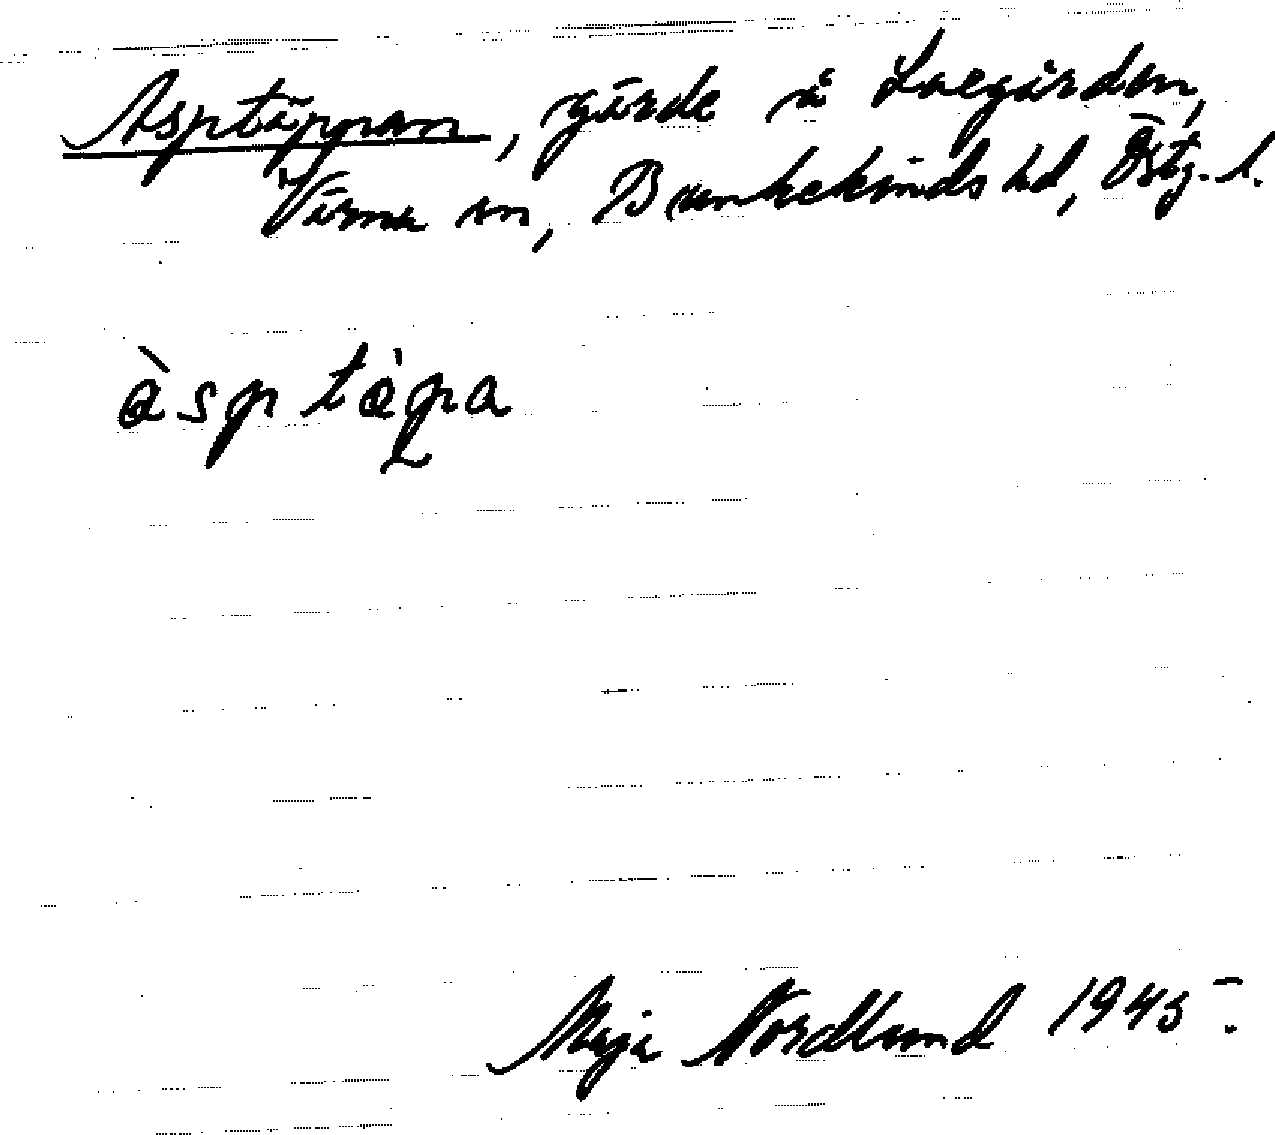 Asptäppan, gärde å Loegården,
Värna sn, Bankekinds hd, Östg. l.
àsptàpa
Maja Nordlund 1945.